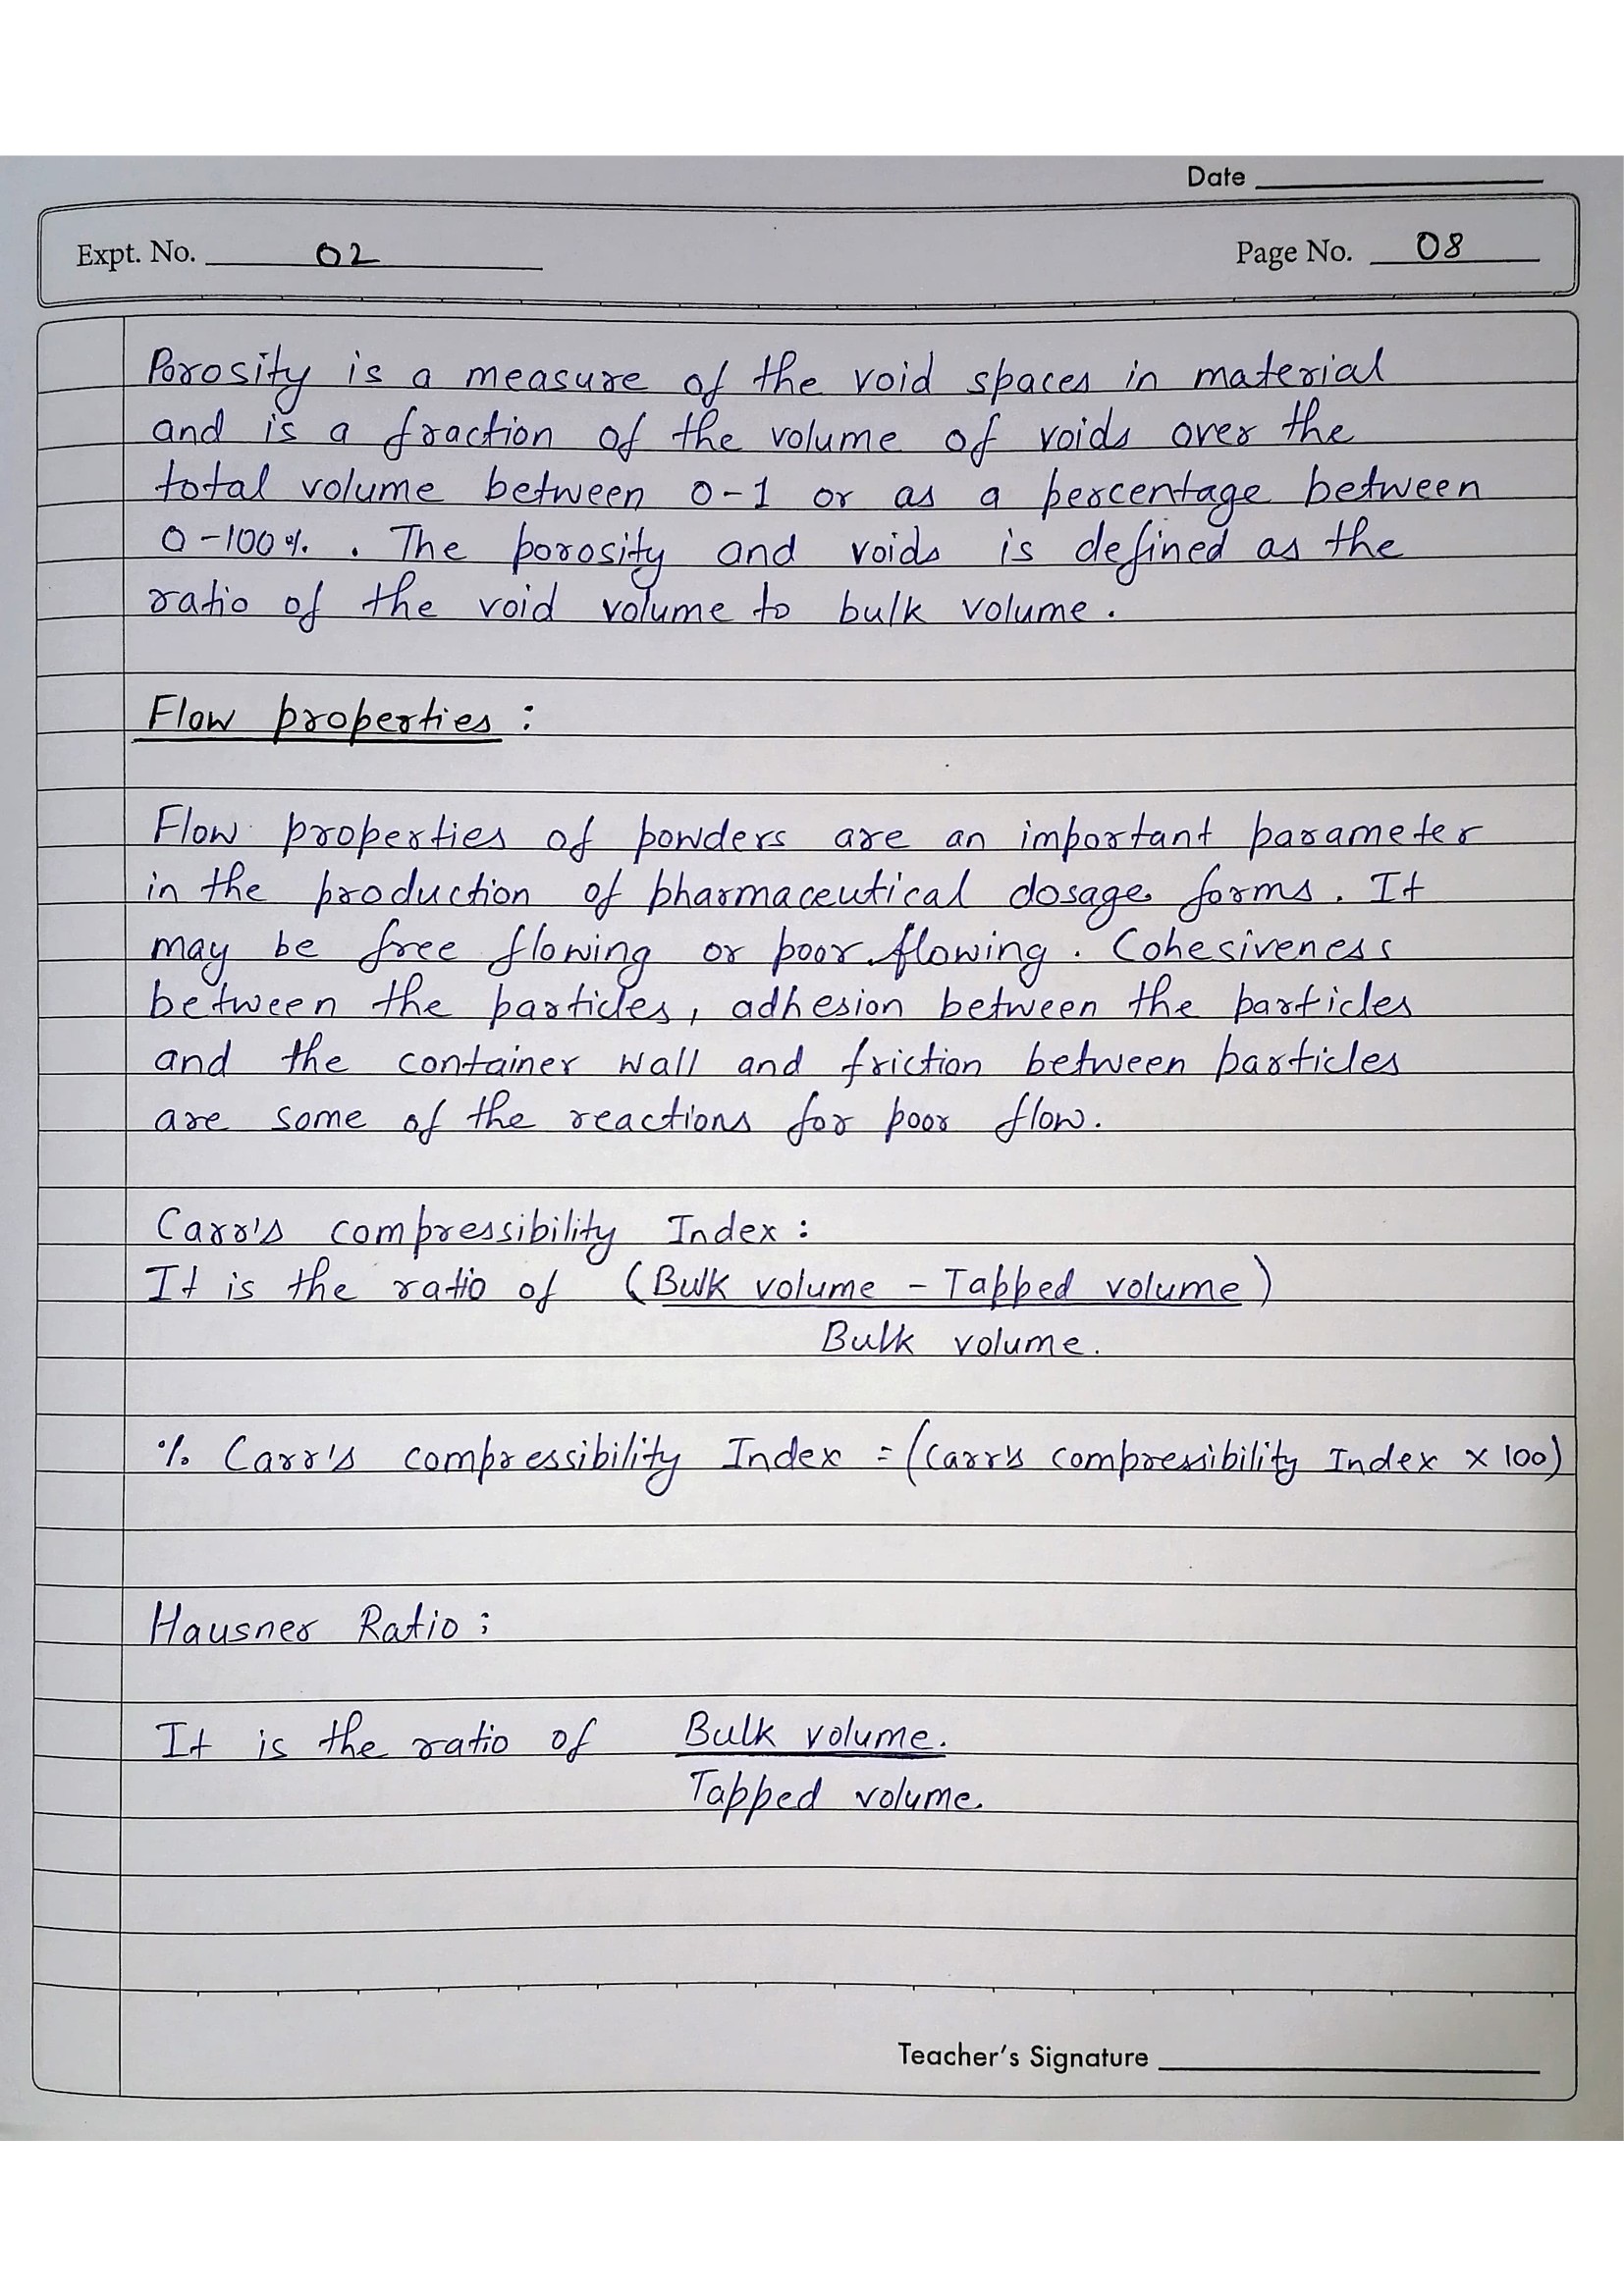 Date
Expt. No. 02 Page No. 08
Porosity is a measure of the void spaces in material
and is a fraction of the volume of voids over the
total volume between 0-1 or as a percentage between
0-100%. The porosity and voids is defined as the
ratio of the void volume to bulk volume.
Flow properties :
Flow properties of powders are an important parameter
in the production of pharmaceutical dosage forms. It
may be free flowing or poor flowing. Cohesiveness
between the particles, adhesion between the particles
and the container wall and friction between particles
are some of the reactions for poor flow.
Carr's compressibility Index :
It is the ratio of (Bulk volume - Tapped volume)
Bulk volume.
% Carr's compressibility Index = (Carr's compressibility Index x 100)
Hausner Ratio ;
It is the ratio of Bulk volume.
Tapped volume.
Teacher's Signature